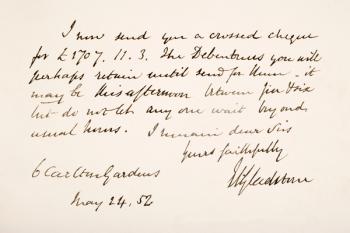 I now send you a crossed cheque
for £1707. 11. 3. The Debentures you will
perhaps retain until send for them - it
may be this afternoon between five & six
but do not let any one wait beyond
usual hours. I remain dear Sir
Yours faithfully
6 Carlton Gardens WEGladstone
May 24, 52